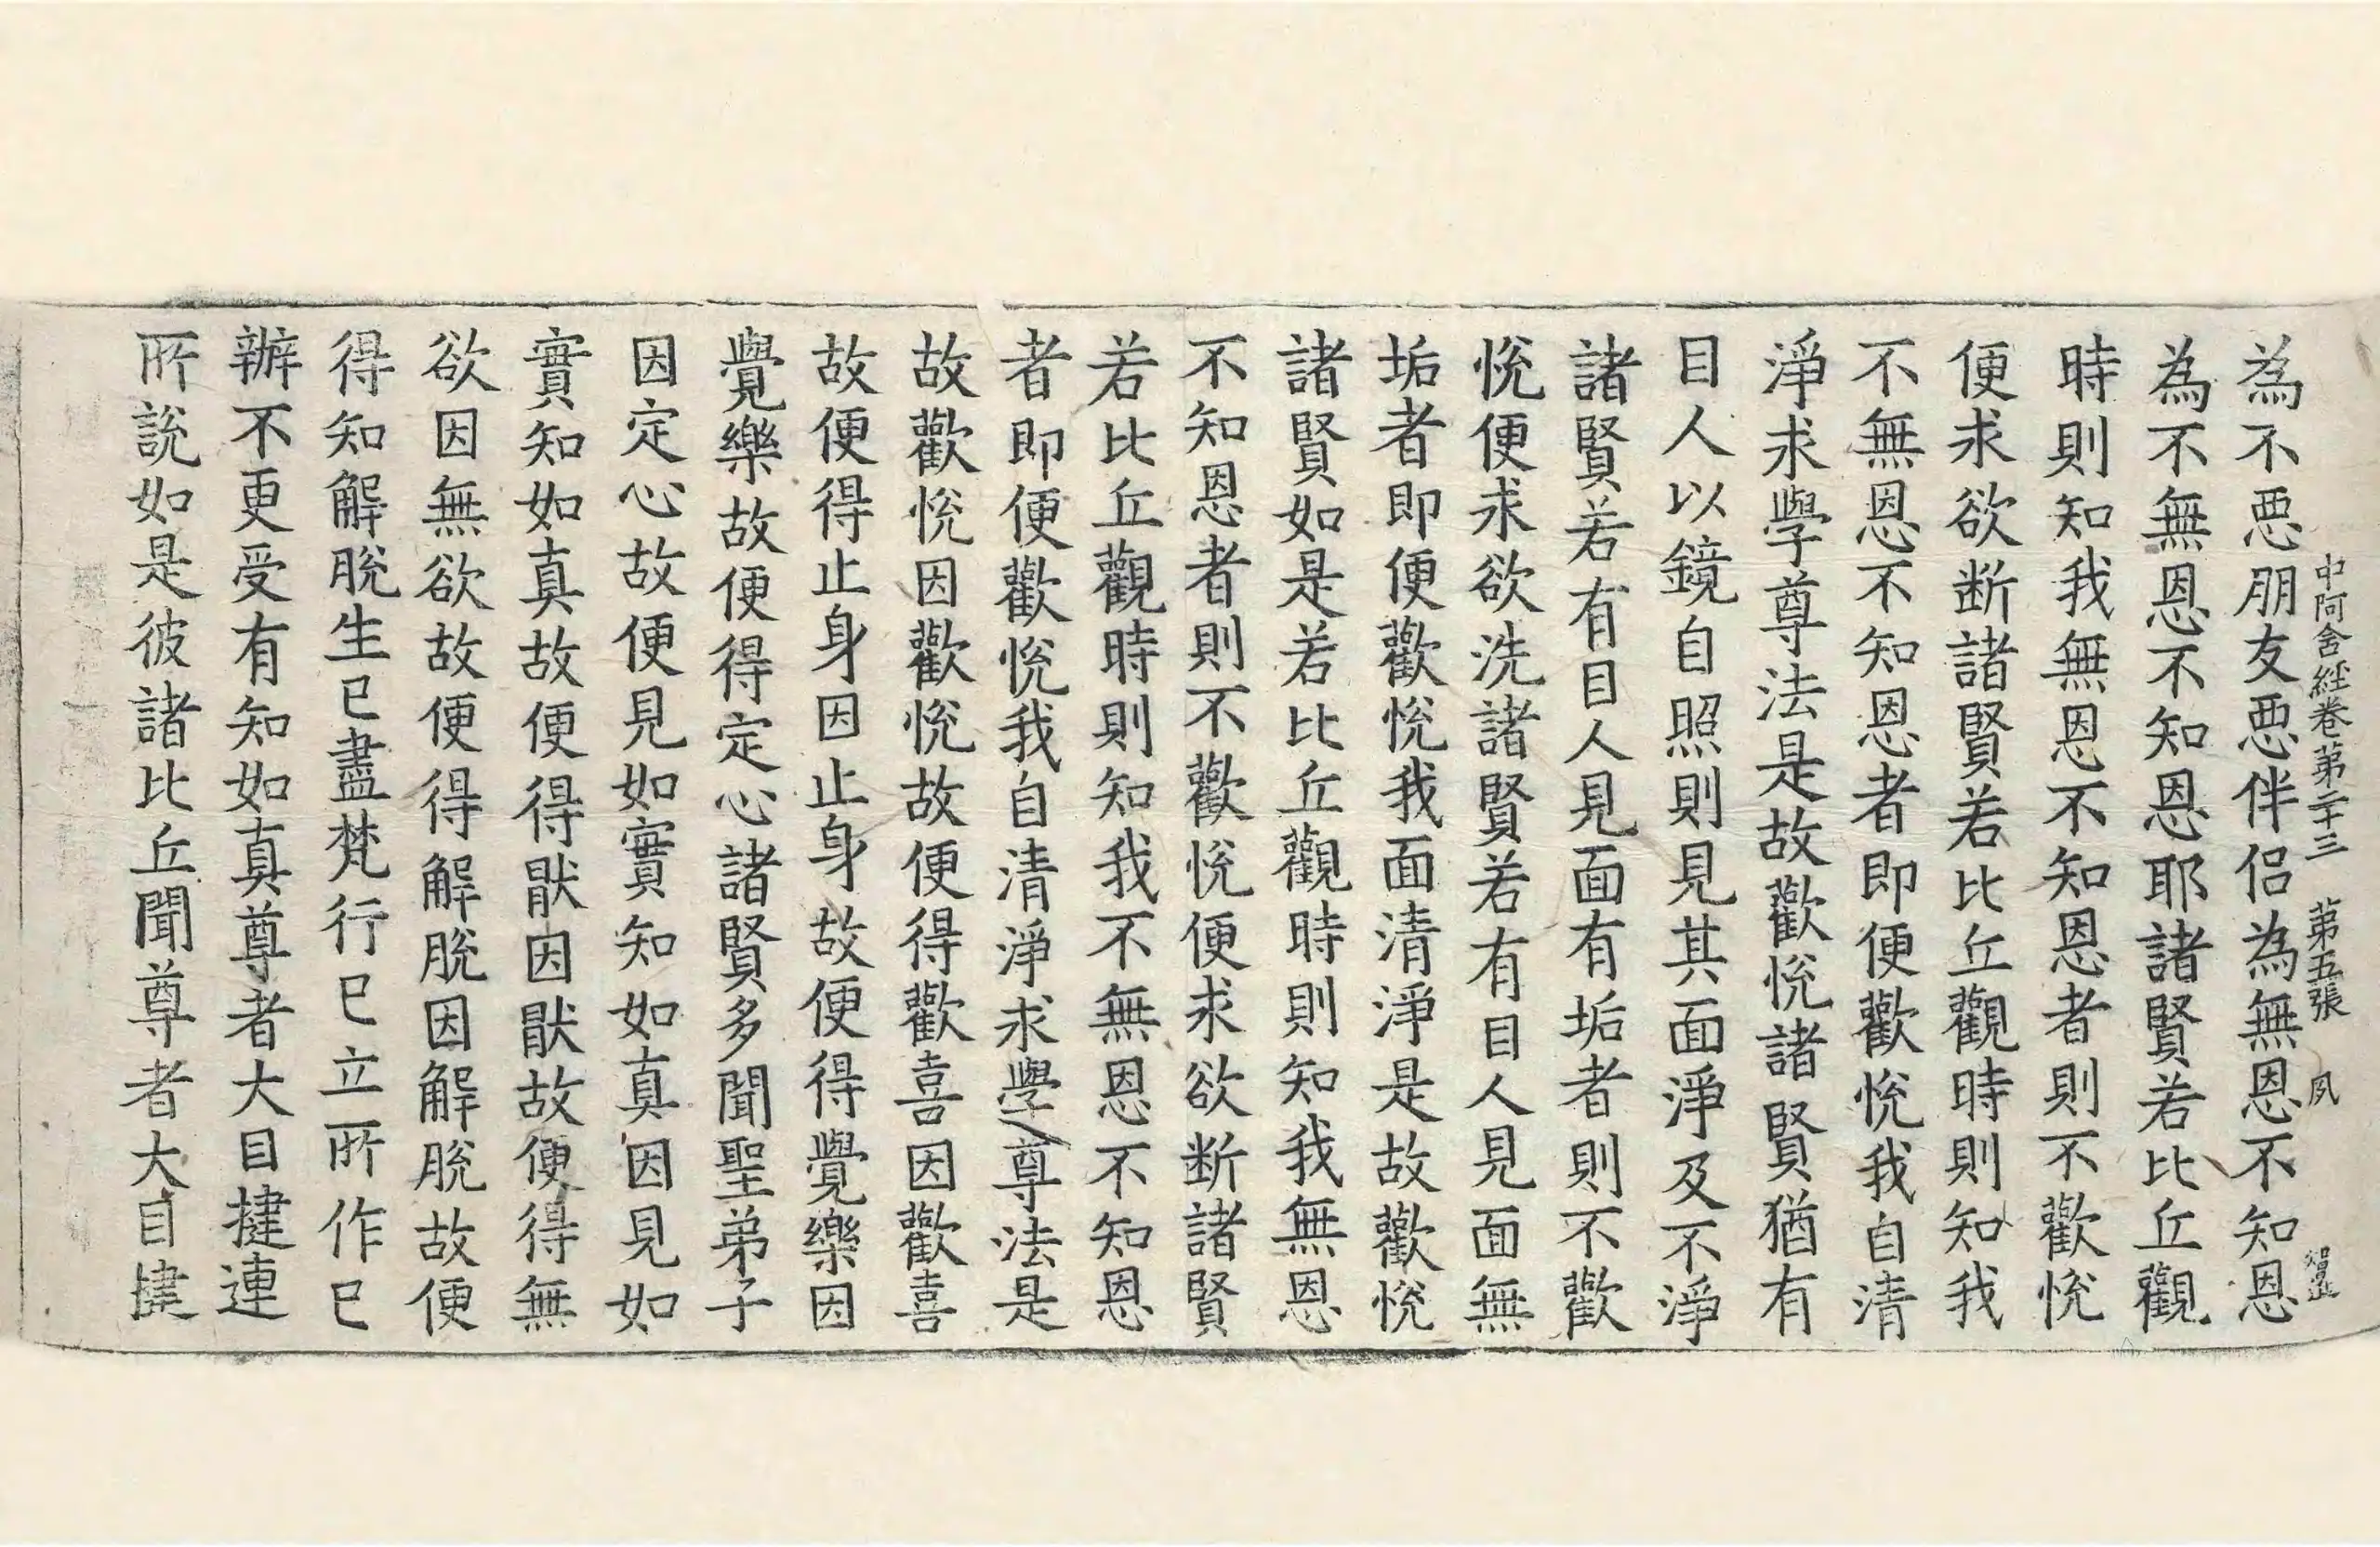 中阿含經卷第二十三 第五張 夙
為不𢙣朋友𢙣伴侶為無恩不知恩
為不無恩不知恩耶諸賢若比丘觀
時則知我無恩不知恩者則不歡恱
便求欲断諸賢若比丘觀時則知我
不無恩不知恩者即便歡恱我自清
淨求學尊法是故歡恱諸賢猶有
目人以鏡自照則見其面淨及不淨
諸賢若有目人見面有垢者則不歡
恱便求欲洗諸賢若有目人見面無
垢者即便歡恱我面清淨是故歡恱
諸賢如是若比丘觀時則知我無恩
不知恩者則不歡恱便求欲断諸賢
若比丘觀時則知我不無恩不知恩
者即便歡恱我自清淨求學尊法是
故歡恱因歡恱故便得歡喜因歡喜
故便得止身因止身故便得覺樂因
覺樂故便得定心諸賢多聞聖弟子
因定心故便見如實知如真因見如
實知如真故便得猒因猒故便得無
欲因無欲故便得解脫因解脫故便
得知解脫生已盡梵行已立所作已
辦不更受有知如真尊者大目揵連
所說如是彼諸比丘聞尊者大目揵